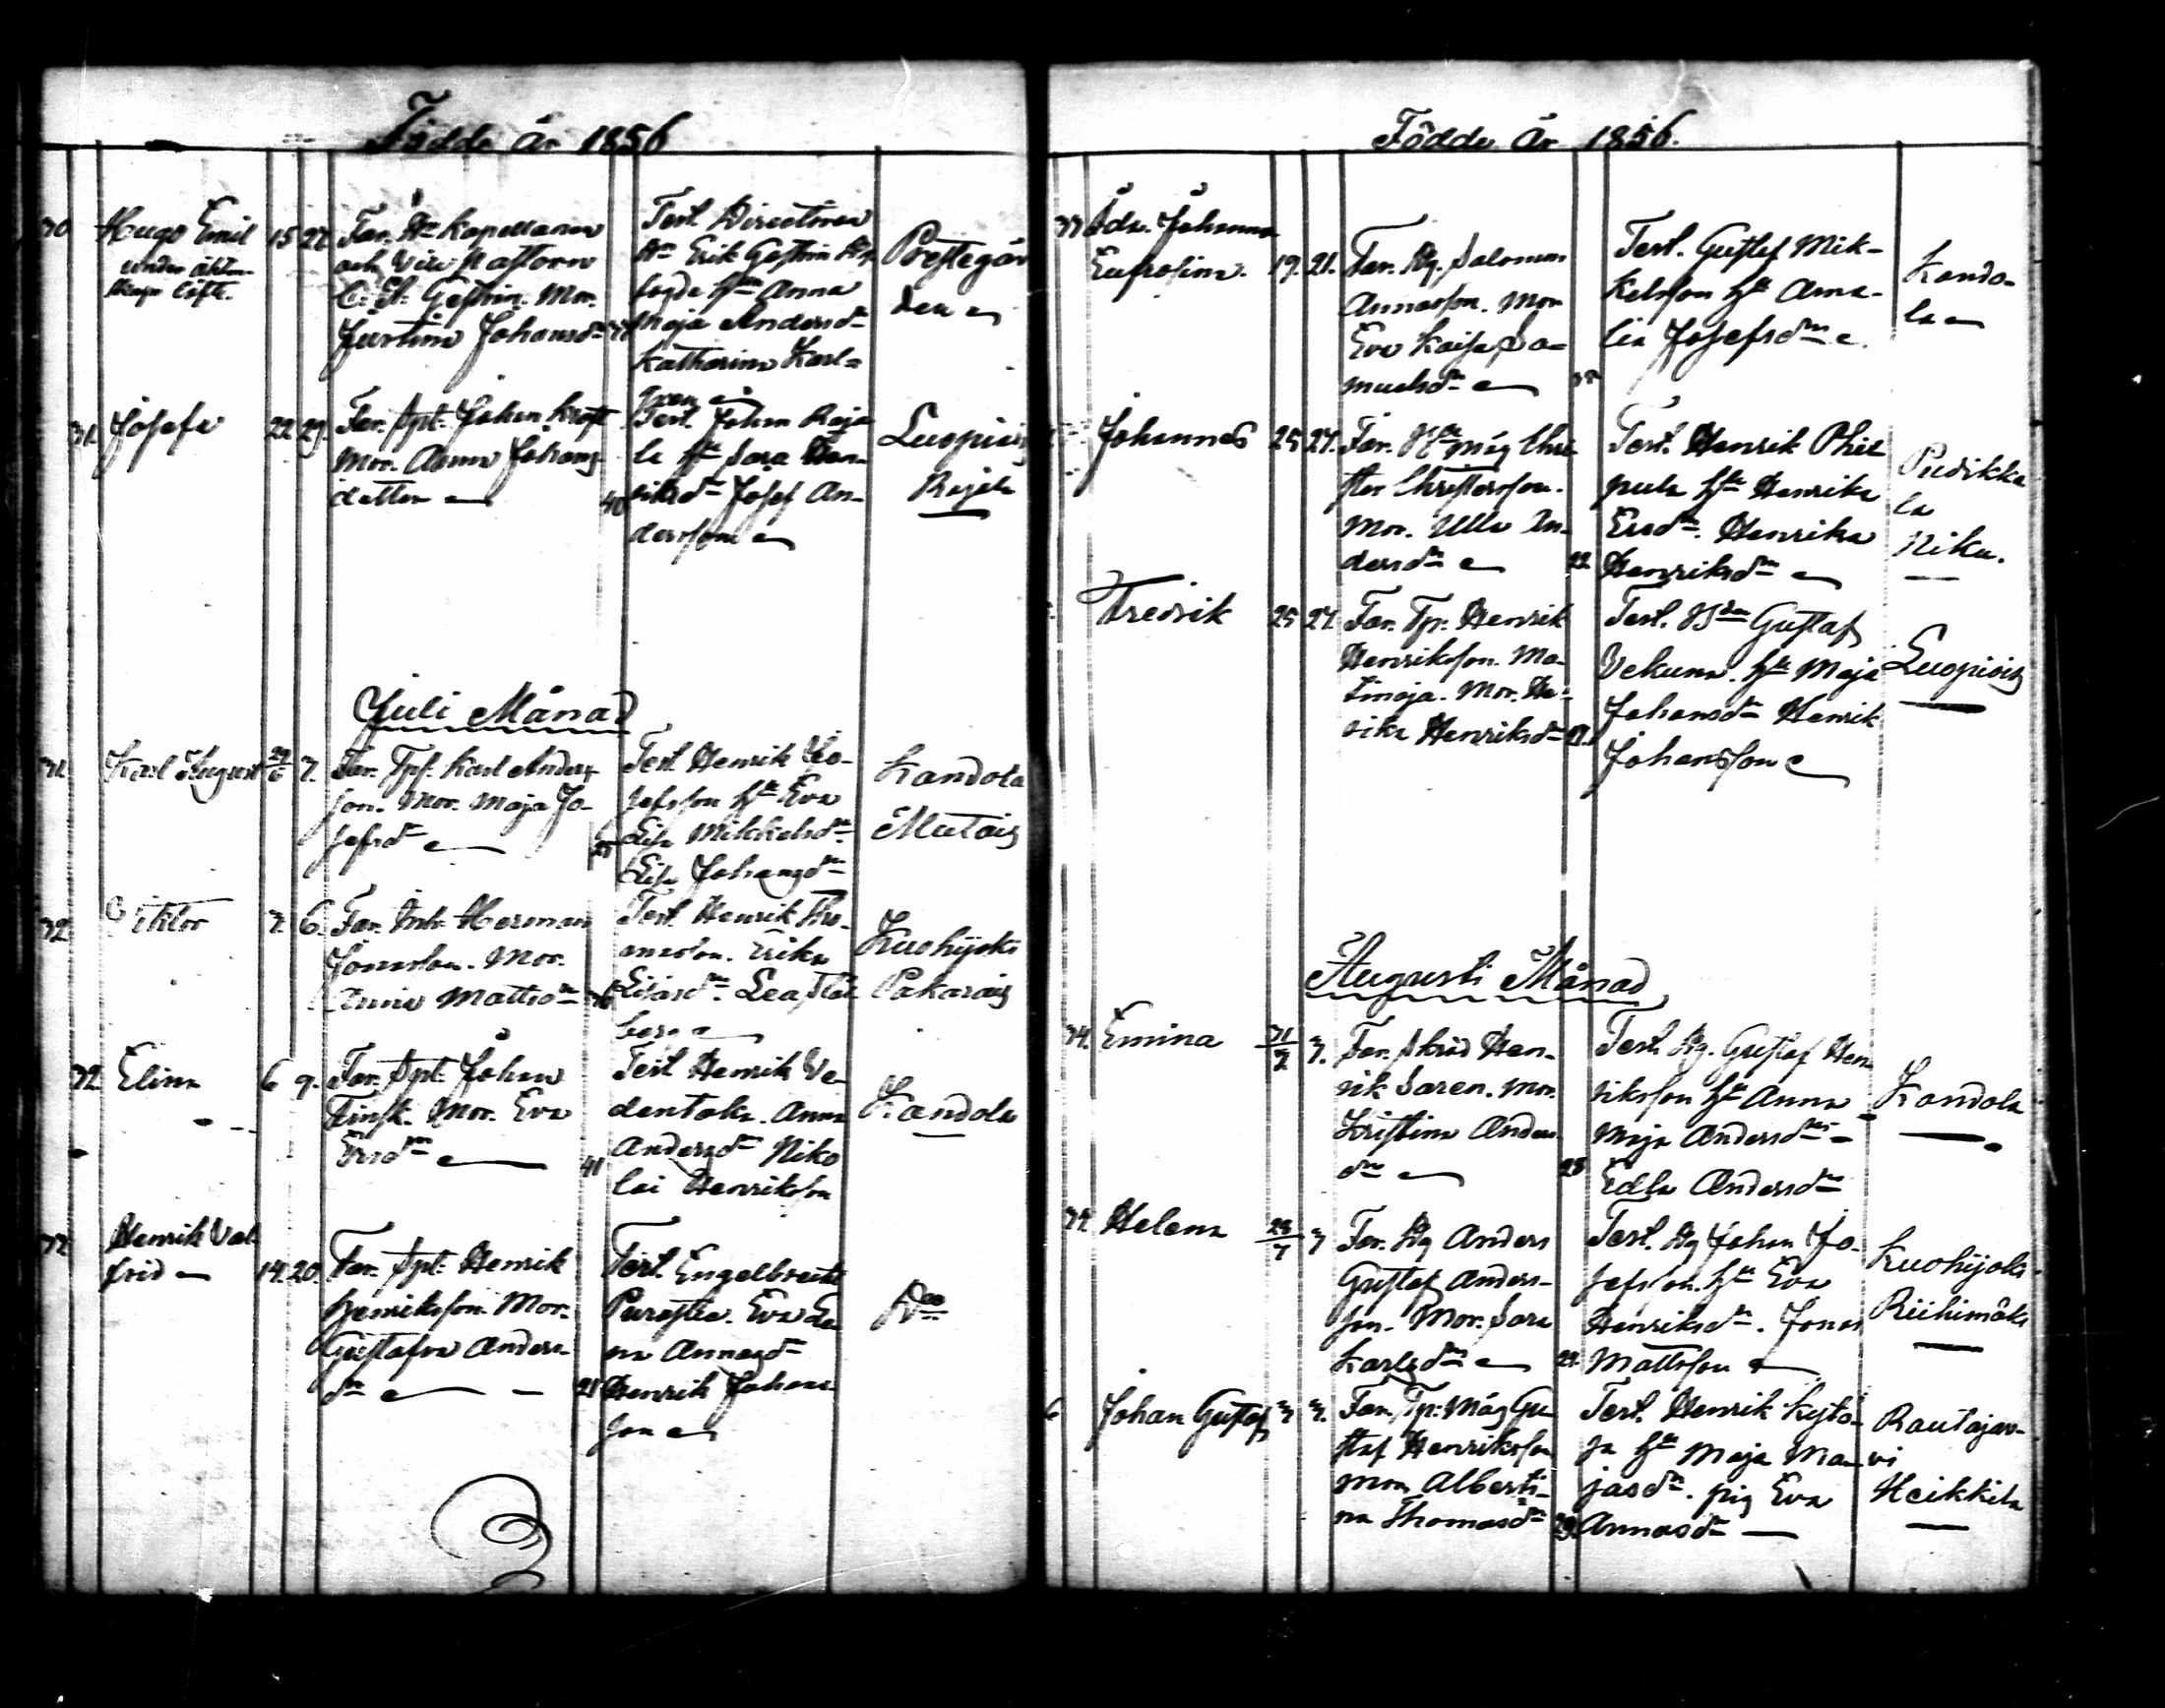 Födde År 1856
30 Hugo Emil 15 27. Far. Hr Kapellanen
under äkten-
skaps löfte.
och Vice Pastorn
C. G. Gestrin. Mor.
Justina Johansdr
Test. Directören
Hr Erik Gestrin
fogde hu Anna
Maja Andersdr
Katharina Karl-
Prestegår
den
31. Josefa 22. 29. Far. Spt. Johan
Mor. Anna Johans
dotter 40
Test. Johan Raja
la hu Sara Hen-
riksdr Josef An-
dersson
Luopiois
Rajala
Juli Månad
Karl August 29/6 7. Far. Tpf. Karl Anders
son. Mor. Maja Jo-
sefsdr
Test. Henrik Jo-
sefsson hu Eva
Lisa Mikkelsdr
Lisa Johansdr
Kandola
Mutais
32. Viktor 3. 6. Far. Inh. Herman
Jonasson. Mor.
Anna Mattsdr
Test. Henrik Tho-
masson. Erika
Kuohijoki
Pakarais
32. Elina 6 9. Far. Spt. Johan
Finsk. Mor. Eva
Ersdr 41
Test. Henrik Ve-
dentaka. Anna
Andersdr Niko
lai Henriksson
Kandola
Henrik Val
frid 14. 20. Far. Spt. Henrik
Henriksson. Mor.
Gustafva Anders-
dr 21
Test. Engelbrecht
Purastie. Eva Le
na Annasdr
Henrik Johans-
son
Do
Födde År 1856.
33 Ida Johanna
Eufrosina. 19. 21. Far. Dg. Salomon
Annasson. Mor
Eva Kaisa Sa-
muelsdr
Test. Gustaf Mik-
kelsson hu Ama-
lia Josefsdr
Kando-
la
Johannes 25 27. Far. måg Chri
ster Christersson.
Mor. Ulla An-
dersdr 22.
Test. Henrik Phil
pula hu Henrika
Ersdr. Henrika
Henriksdr
Pudikka
la
Niku.
Fredrik 25 27. Far. Tp. Henrik
Henriksson. Ma-
Mor. He-
rika Henriksdr
Test. Gustaf
Vekuna. hu Maja
Johansdr Henrik
Johansson
Luopiois
Augusti Månad
34. Emina 31/7 3. Far. Skräd Hen-
rik Saren. Mor.
Kristina Anders
dr 28
Test. Dg. Gustaf Hen
riksson hu Anna
Maja Andersdr
Edla Andersdr
Kandola
Helena 28/7 3 Far. Dg Anders
Gustaf Anders-
son. Mor. Sara
Karlsdr
Test. Dg Johan Jo-
sefsson. hu Eva
Henriksdr. Jonas
Mattsson
Kuohijoki
Riihimäki
Johan Gustaf 3. Far. Tp. Måg Gu
staf Henriksson
Mor Alberti-
na Thomasdr
Test. Henrik Kytö-
ja hu Maja Ma-
jasdr. pig Eva
Annasdr
Rautajär-
vi
Heikkila